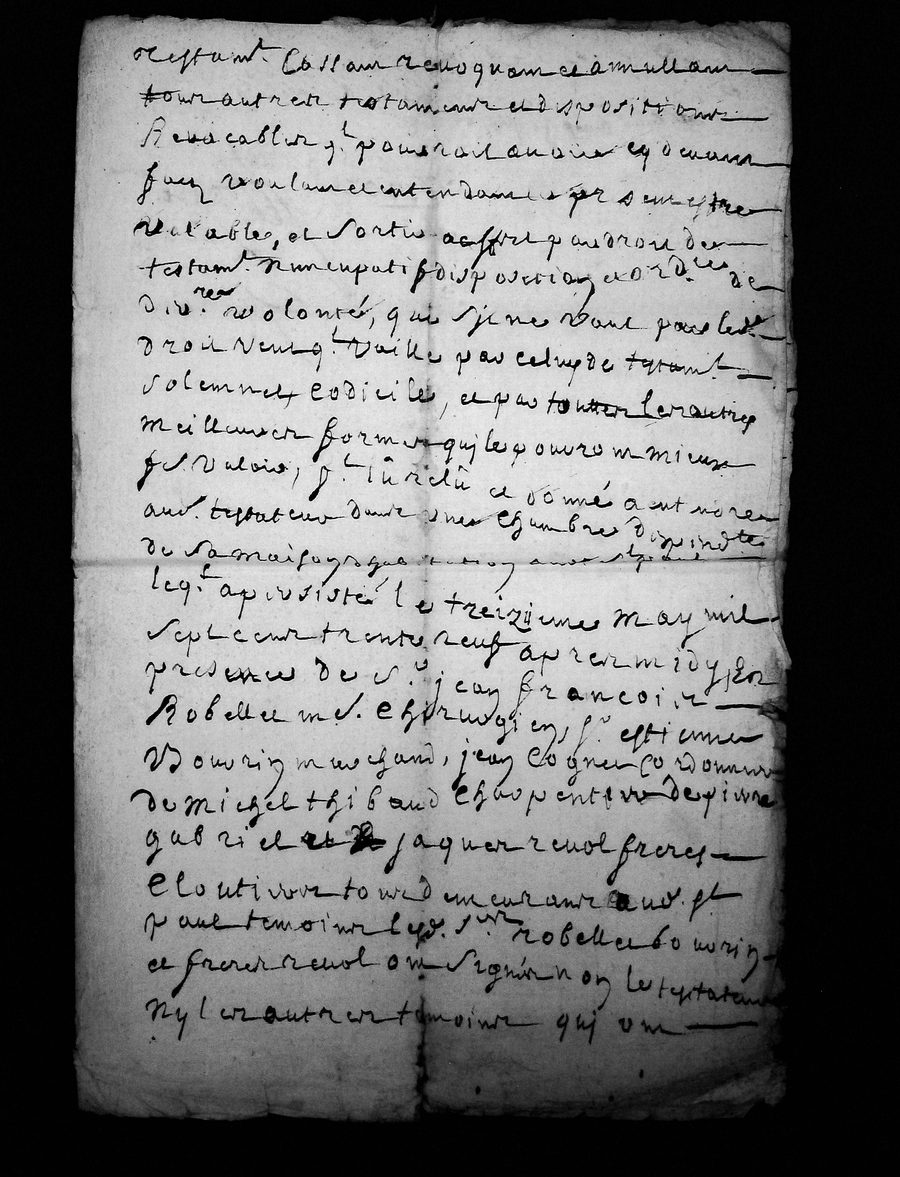 testam.t Cassant revoquant et annullant
tous autres testaments et dispositions
Revocables q.t pourroit avoir cy devant
fait voulant et entendant le pr̃sent estre
valable, et sortir a effet par droit de
testam.t nuncupatif disposition et ord.ce de
der.re volonté, que si ne vaut par led.
droit veut q.t vaille par celuy de testam.t
solemnel, codicile, et par toutes les autres
meilleures formes qui le pourront mieux
fe. valoir, f.t lû relû et donné a entendre
aud. testateur dans une Chambre
de sa maison d'habitation a
leq.t a persisté le treizieme may mil
sept cens trente neuf apres midy, En
presence de s.r jean francois
Robelle me S. Chirurgien, s.r estienne
Bouvrin marchand, jean Cognet Cordonnier
de michel thibaud Charpentier de pierre
gabriel et jaques revol freres
Cloutiers tous demeurants aud. st
paul temoins lesd. s.rs robelle bouvrin
et freres revol ont signés non le testateur
ny les autres temoins qui ont